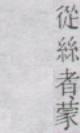 從絲者蒙